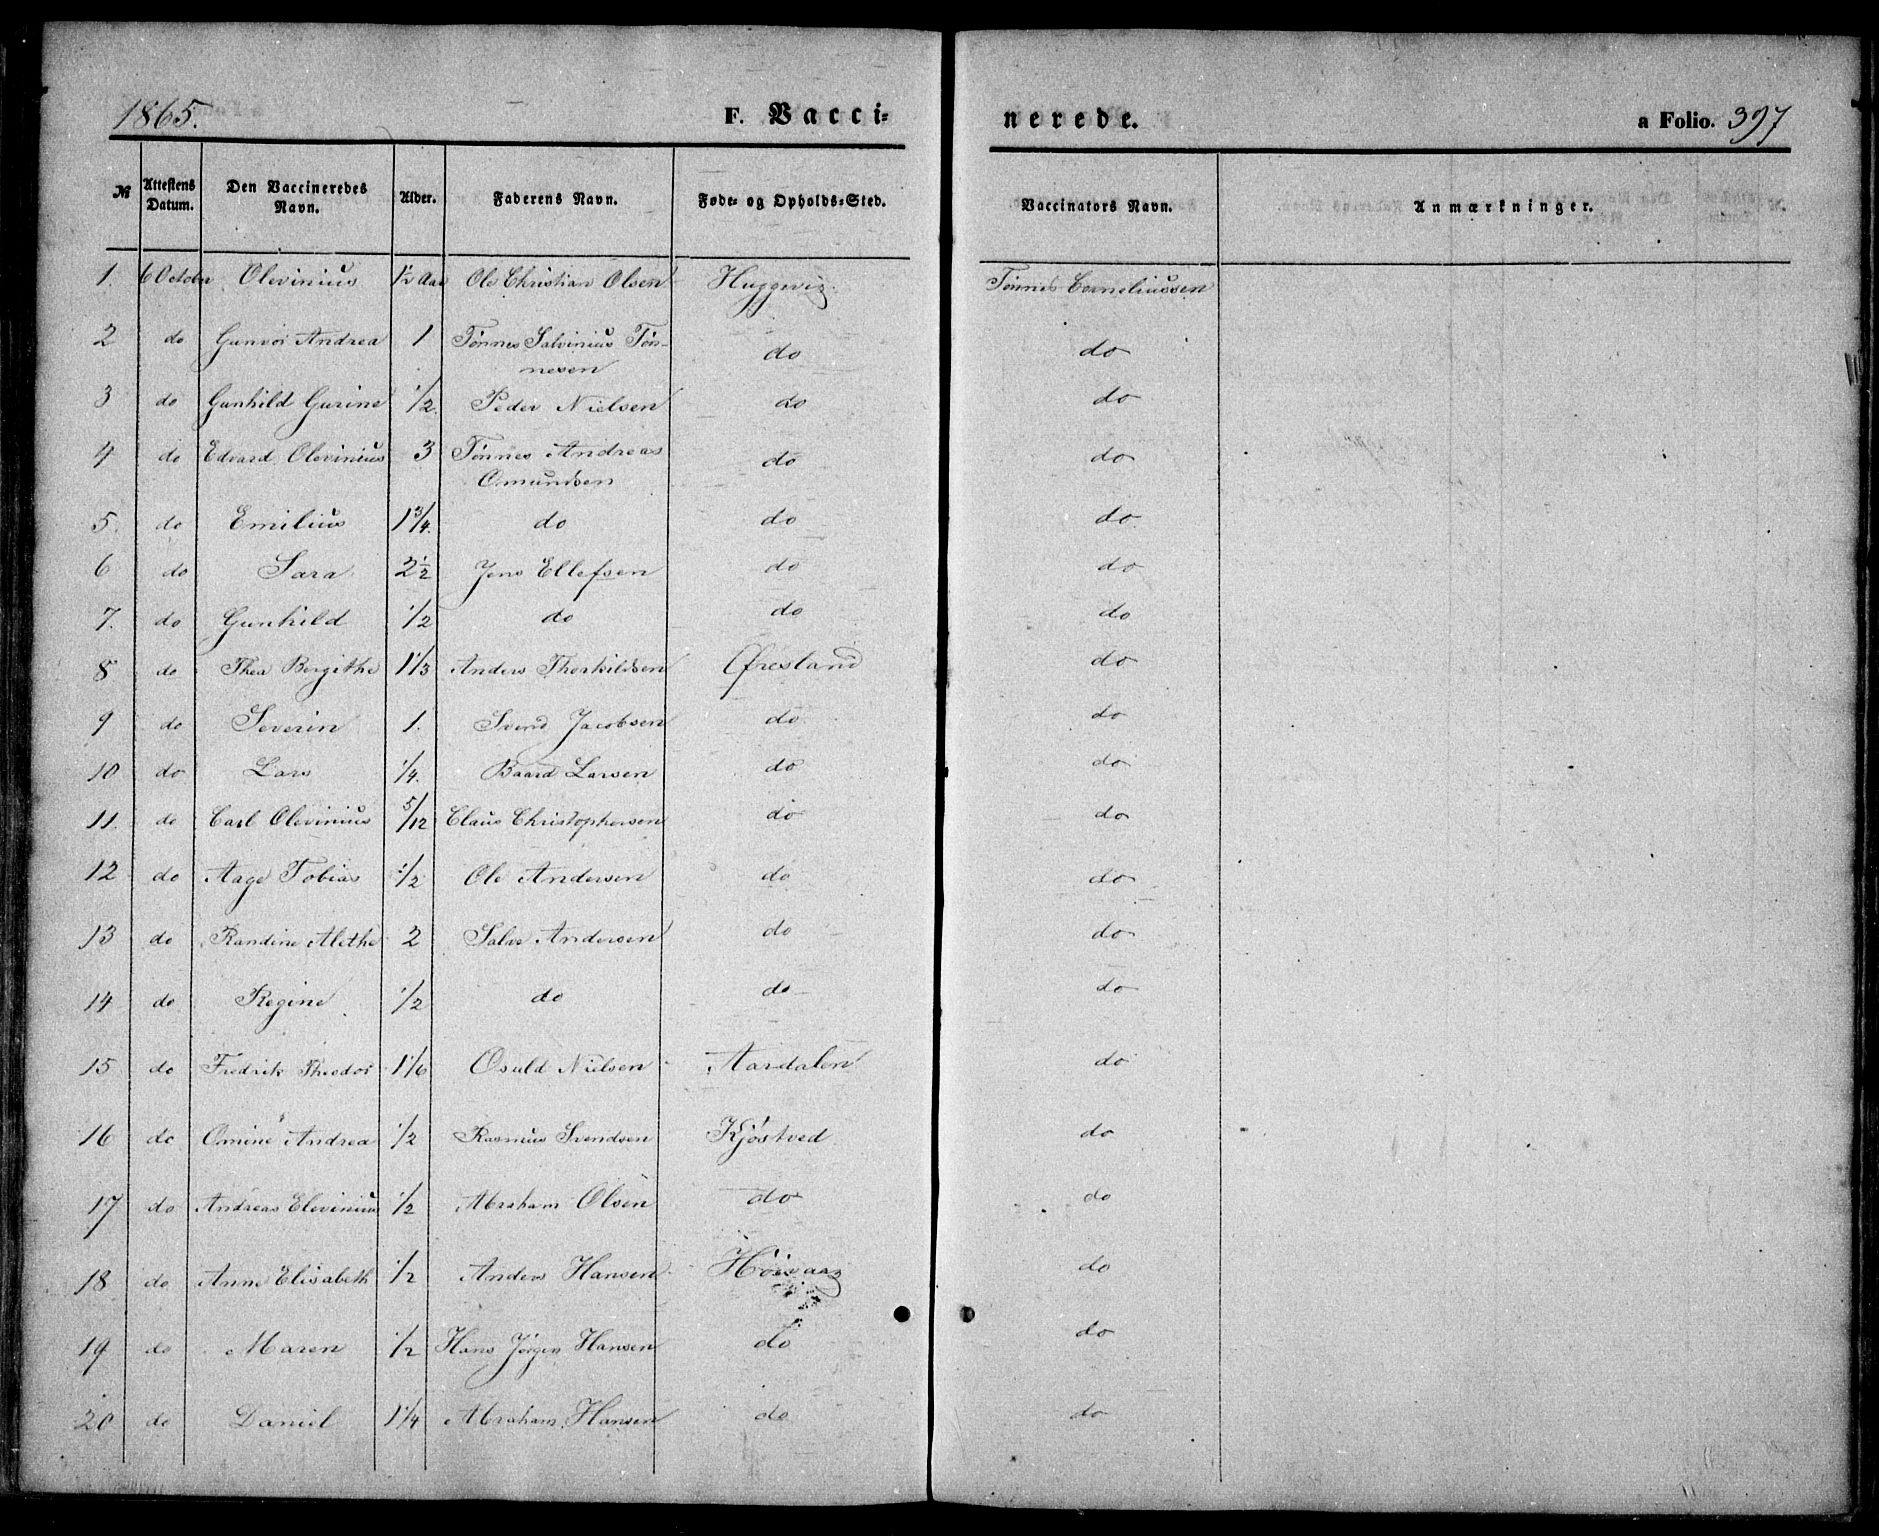 1865. F. Vacci= nerede. a Folio. 397
№ Attestens Datum. Den Vaccineredes Navn. Alder. Faderens Navn. Føde- og Opholds-Sted. Vaccinators Navn. Anmærkninger.
1. 6 October Olevinius 1½ Aar Ole Christian Olsen Huggevig. Tønnes Corneliussen
2 do Gunvor Andrea 1 Tønnes Salvinius Tøn- do do
nesen
3 do Gunhild Gurine 1/2. Peder Nielsen do do
4 do Edvard Olevinius 3 Tønnes Andreas do do
Omundsen
5. do Emilius 1 3/4. do do do
6 do Sara 2½ Jens Ellefsen do do
7. do Gunhild 1/2 do do do
8 do Thea Bergithe 1 1/3 Anders Thorkildsen Øfresland do
9 do Severin 1. Svend Jacobsen do do
10 do Lars 1/4. Baard Larsen do do
11. do Carl Olevinius 5/12 Claus Christophersen do do
12 do Aage Tobias 1/2 Ole Andersen do do
13 do Randine Alethe 2 Salve Andersen do do
14 do Regine 1/2 do do do
15 do Fredrik Theodor 1 1/6 Osuld Nielsen Aardalen do
16 do Omine Andrea 1/2 Rasmus Svendsen Kjøstved do
17 do Andreas Elevinius 1/2 Abraham Olsen do do
18 do Anne Elisabeth 1/2 Anders Hansen Høivaag do
19 do Maren 1/2 Hans Jørgen Hansen do do
20 do Daniel 1 1/4 Abraham Hansen do do